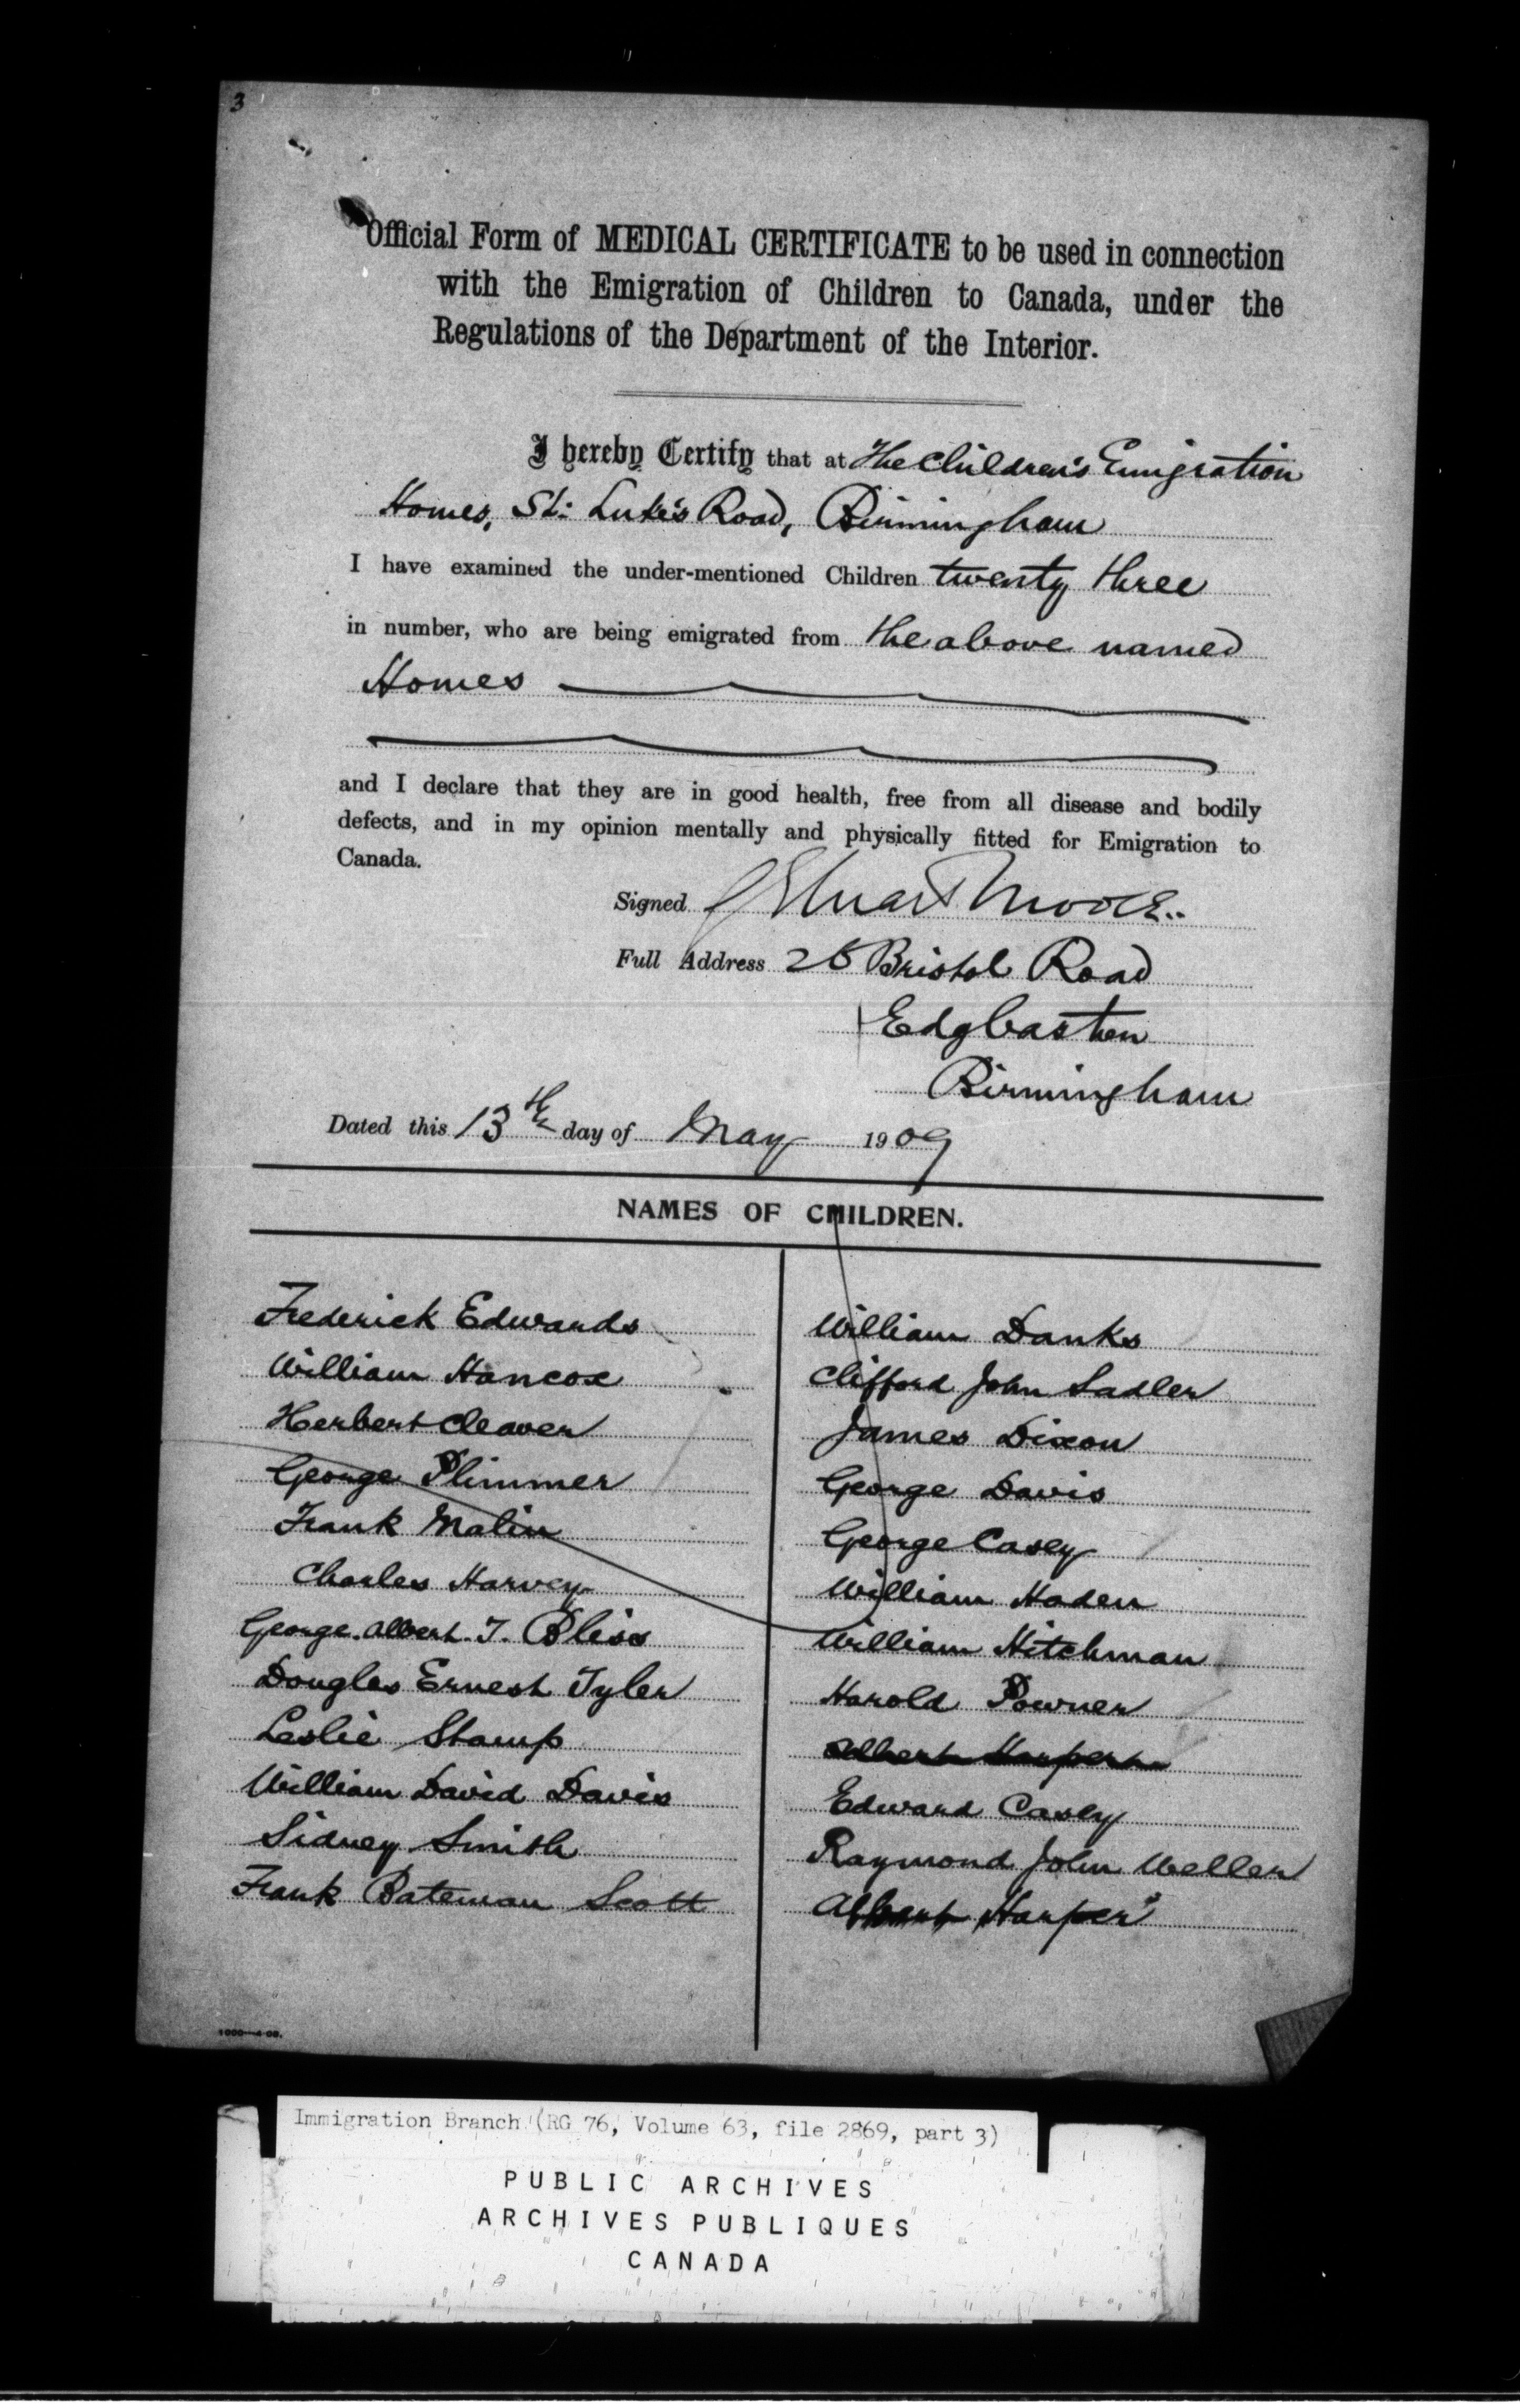 3
Official Form of MEDICAL CERTIFICATE to be used in connection
with the Emigration of Children to Canada, under the
Regulations of the Department of the Interior.
I hereby Certify that at The Children's Emigration
Homes, St: Luke's Road, Birmingham
I have examined the under-mentioned Children twenty three
in number, who are being emigrated from the above named
Homes
and I declare that they are in good health, free from all disease and bodily
defects, and in my opinion mentally and physically fitted for Emigration to
Canada.
Signed Stuart Moore
Full Address Bristol Road
Edgbaston
Birmingham
Dated this 13th day of May 1909
NAMES OF CHILDREN.
Frederick Edwards
William Hancox
Herbert Cleaver
George Plimmer
Frank Malin
Charles Harvey
George Albert T. Bliss
Douglas Ernest Tyler
Leslie Stamp
William David Davis
Sidney Smith
Frank Bateman Scott
William Danks
Clifford John Sadler
James Dixon
George Davis
George Casey
William Haden
William Hitchman
Harold Powner
Albert Harper
Edward Casey
Raymond John Weller
Albert Harper
1000—4-09.
Immigration Branch (RG 76, Volume 63, file 2869, part 3)
PUBLIC ARCHIVES
ARCHIVES PUBLIQUES
CANADA